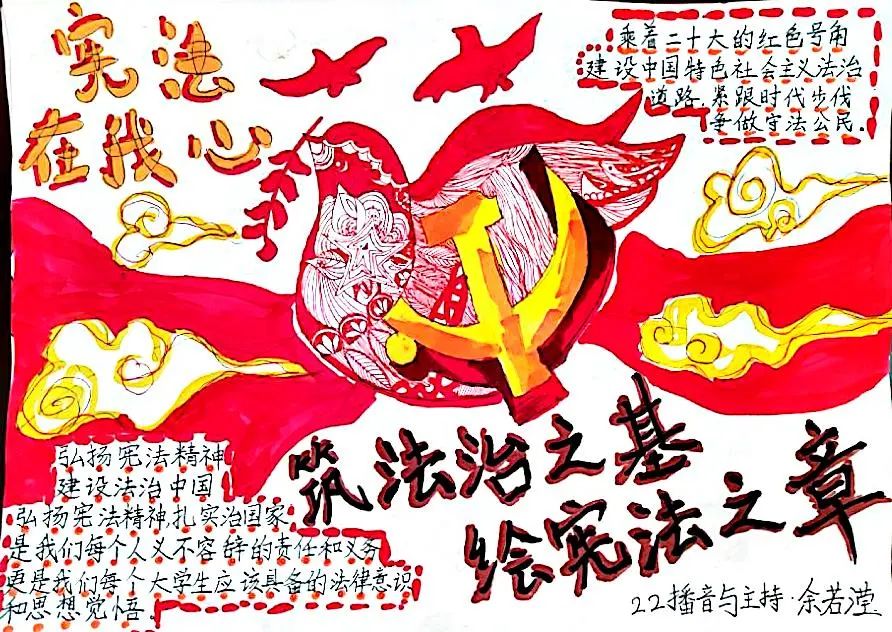 宪法
在我心
乘着二十大的红色号角
建设中国特色社会主义法治
道路.紧跟时代步伐
争做守法公民.
筑法治之基
绘宪法之章
弘扬宪法精神
建设法治中国
弘扬宪法精神扎实治国家
是我们每个人义不容辞的责任和义务
更是我们每个大学生应该具备的法律意识
和思想觉悟.
22播音与主持·余若滢